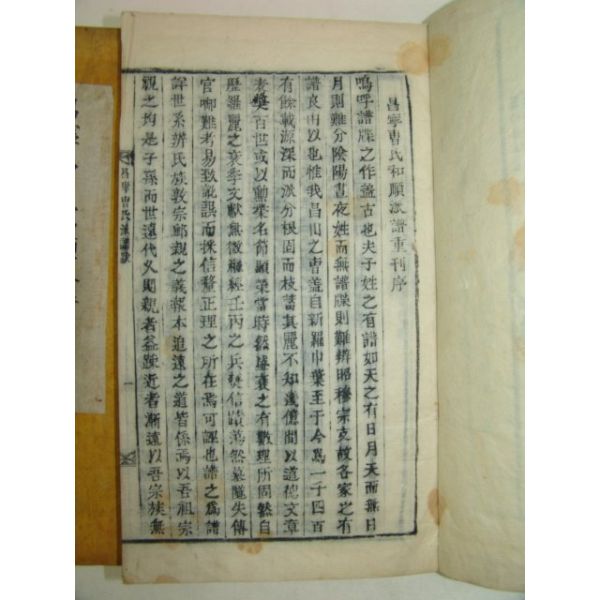 昌寧曺氏和順派譜重刊序
嗚呼譜牒之作盖古也夫子姓之有譜如天之有日月天而無日
月則難分陰陽晝夜姓而無譜牒則難辨昭穆宗支故各家之有
譜良由以也惟我昌山之曺盖自新羅中葉至于今爲一千四百
有餘載源深而派分根固而枝蕃其麗不知幾億間以道德文章
表 百世或以勳業名節顯榮當時然盛衰之有數理所固然自
歷羅麗之衰季文獻無徵 經壬丙之兵燹信蹟蕩然墓隧失傳
官啣難考易致訛誤而採信務正理之所在焉可誣也譜之爲譜
詳世系辨氏族敦宗 親之義報本追遠之道皆係焉以吾祖宗
觀之均是子孫而世遠代久則親者益踈近者漸遠以吾宗族無
昌寧曺氏派譜
一